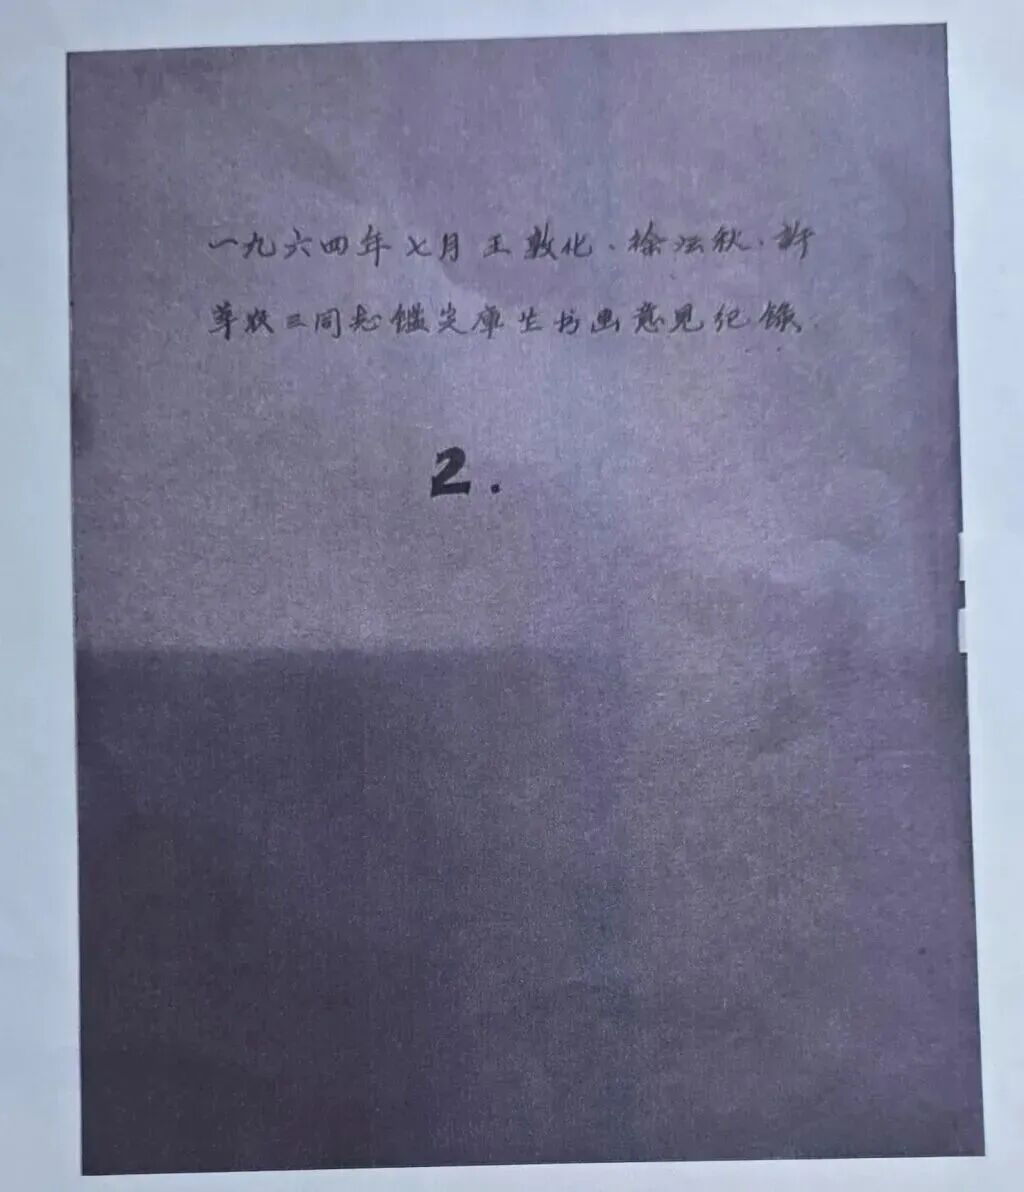 一九六四年七月王敦化、徐沄秋、许
莘农三同志鑑定庫生书画意见纪录
2.